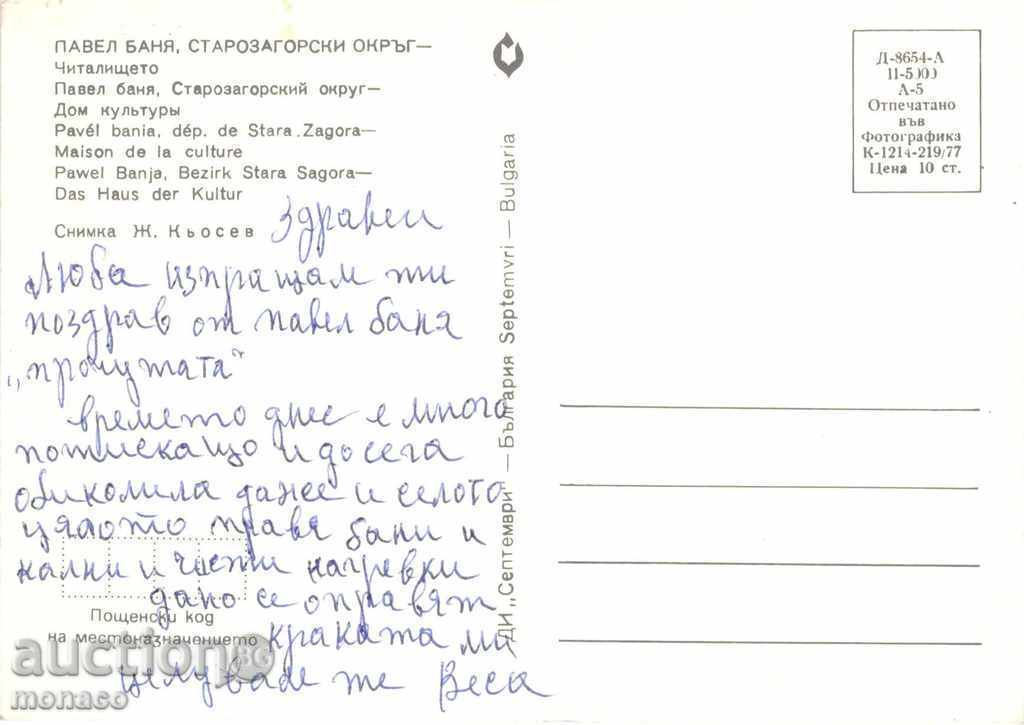 ПАВЕЛ БАНЯ, СТАРОЗАГОРСКИ ОКРЪГ—
Читалището
Павел баня, Старозагорский округ—
Дом культуры
Pavél bania, dép. de Stara Zagora—
Maison de la culture
Pawel Banja, Bezirk Stara Sagora—
Das Haus der Kultur
Снимка Ж. Кьосев
Здравей
Люба изпращам ти
поздрав от павел баня
„прочутата“
времето днес е много
потискащо и досега
обиколила даже и селото
цялото правя бани и
кални и чисти нагревки
дано се оправят
краката ми
целувам те Веса
Пощенски код
на местоназначението
ДИ „Септември“ — България Septemvri — Bulgaria
Д-8654-А
II-5000
А-5
Отпечатано
във
Фотографика
К-1214-219/77
Цена 10 ст.
АУКЦИОН BG
monaso